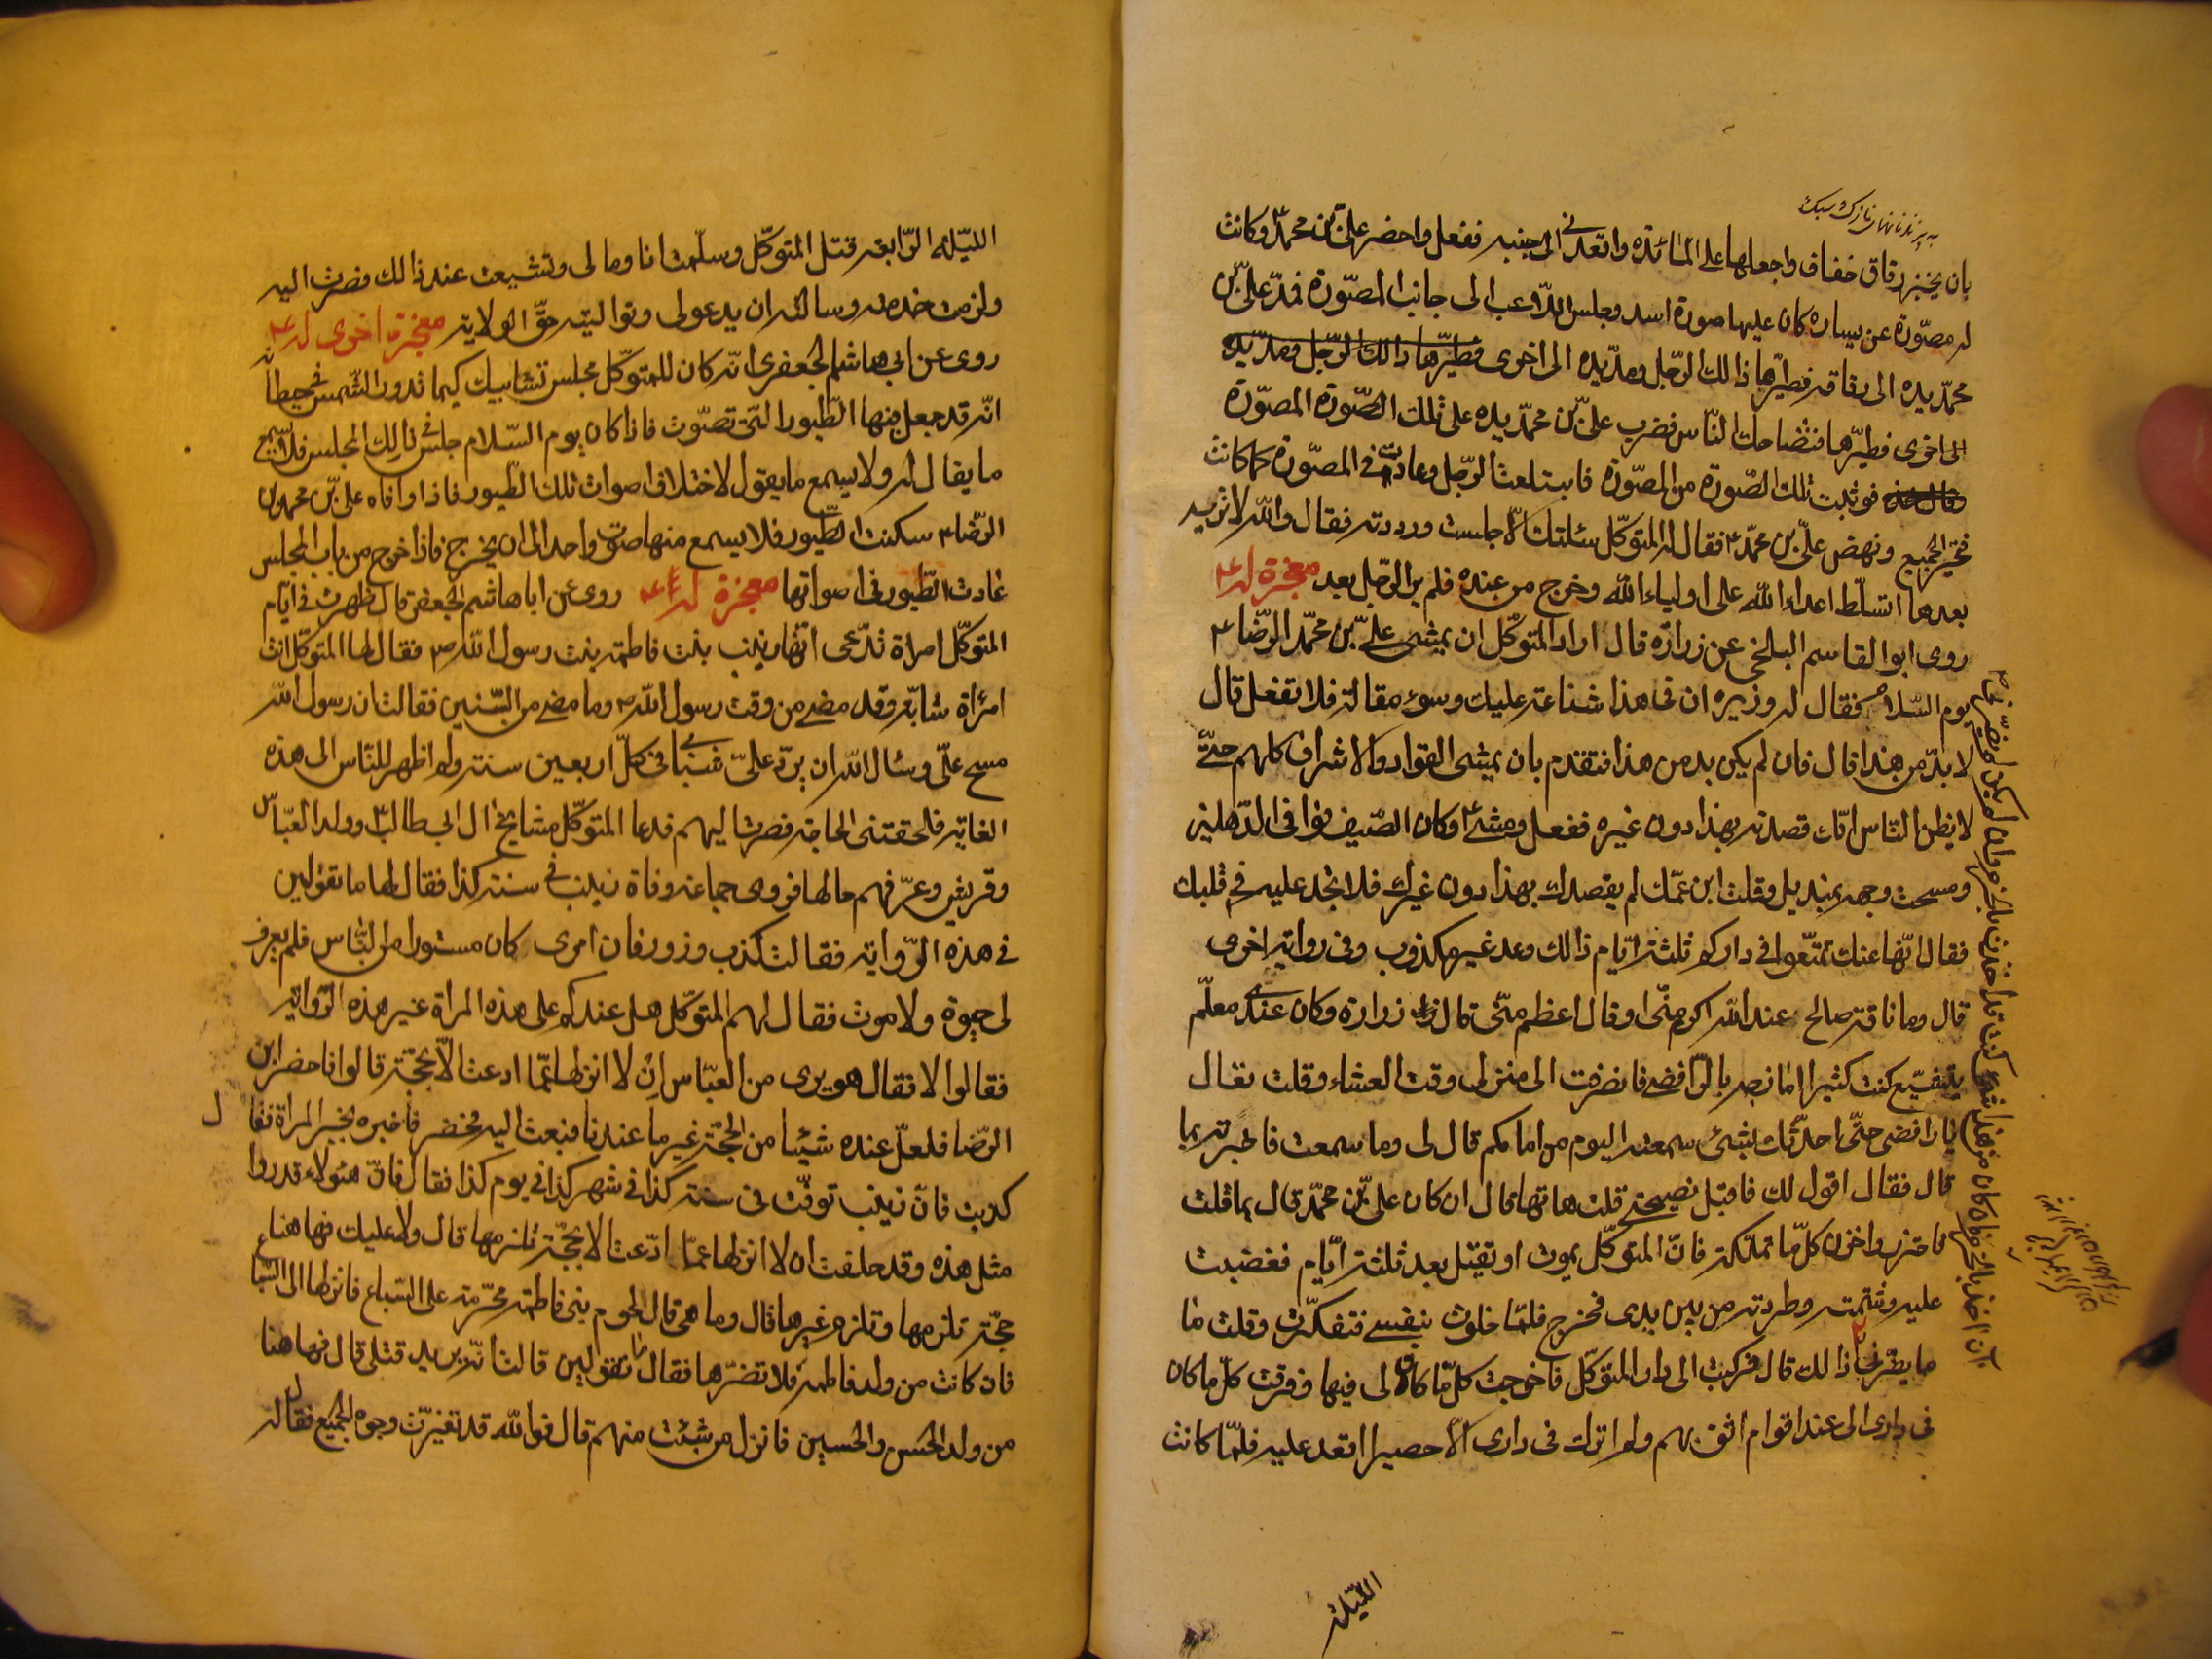 بان يخبز رقاق خفاف واجعلها على المائدة واقعدني الى جنبه ففعل واحضر علىّ بن محمّد ع وكانت
له مصوّرة عن يساره كان عليها صورة اسد وجلس اللّاعب الى جانب المصوّرة فمدّ علىّ بن
محمّد يده الى رقاقة فطيّرها ذالك الرّجل ومدّ يده الى اخرى فطيّرها ذالك الرّجل ومدّ يده
الى اخرى فطيّرها فتضاحك النّاس فضرب علىّ بن محمّد يده على تلك الصّورة المصوّرة
فوثبت تلك الصّورة من المصوّرة فابتلعت الرّجل وعادت فى المصوّرة كما كانت
فتحيّر الجميع ونهض علىّ بن محمّد ع فقال له المتوكّل سئلتك الّا جلست ورددته فقال والله لا تريه
بعدها اتسلّط اعداء الله على اولياء الله وخرج من عنده فلم ير الرّجل بعد معجزة له ع
روى ابو القاسم البلخى عن زرارة قال اراد المتوكّل ان يمشى علىّ بن محمّد الرّضا ع
يوم السّلام فقال له وزيره ان فى هذا شناعة عليك وسوء مقالة فلا تفعل قال
لا بدّ من هذا قال فان لم يكن بد من هذا فتقدم بان يمشى القواد والاشراف كلهم حتّى
لا يظن النّاس انّك قصدته بهذا دون غيره ففعل ومشى ع وكان الصّيف فوافى الدّهليز
ومسحت وجهه بمنديل وقلت ابن عمّك لم يقصدك بهذا دون غيرك فلا تجد عليه فى قلبك
فقال ايّها عنك تمتّعوا فى داركم ثلثة ايّام ذالك وعد غير مكذوب وفى رواية اخرى
قال وما ناقة صالح عند الله اكرم منّى او قال اعظم منّى قال زرارة وكان عندى معلّم
يتشيّع كنت كثيرا امازحه بالرّافضى فانصرفت الى منزلى وقت العشاء وقلت تعال
يا رافضى حتّى احدّثك بشئ سمعته اليوم من امامكم قال لى وما سمعت فاخبرته بما
قال فقال اقول لك فاقبل نصيحتى قلت هاتها قال ان كان علىّ بن محمّد قال بما قلت
فاحترز واخزن كلّ ما تملكه فانّ المتوكّل يموت او تقتل بعد ثلثة ايّام فغضبت
عليه وشتمته وطردته من بين يدى فخرج فلمّا خلوت بنفسى فتفكّرت وقلت ما
يضرّنى ذالك قال فركبت الى دار المتوكّل فاخرجت كلّ ما كان لى فيها وفرقت كلّ ما كان
فى دارى الى عند اقوام اثق بهم ولم اترك فى دارى الّا حصيرا اقعد عليه فلمّا كانت
الليلة
ان اخذ بالحزم فان كان من هذا شئ كنت قد اخذت بالحزم وان لم يكن لم يضرّنى
الليّلة الرّابعة قتل المتوكّل وسلّمت انا ومالى وتشيعت عند ذالك فصرت اليه
ولزمت خدمته وسالته ان يدعو لى وتواليته حقّ الولاية معجزة اخرى له ع
روى عن ابى هاشم الجعفرى انّه كان للمتوكّل مجلس شبابيك كيما تدور الشّمس فى حيطانه
انّه قد جعل فيها الطّيور الّتى تصوّت فاذا كان يوم السّلام جلس فى ذالك المجلس فلا يسمع
ما يقال له ولا يسمع ما يقول لاختلاف اصوات تلك الطّيور فاذا وافاه علىّ بن محمد بن
الرّضا ع سكنت الطّيور فلا يسمع منها صوت واحد الى ان يخرج فاذا خرج من باب المجلس
عادت الطّيور فى اصواتها معجزة له ع روى عن ابا هاشم الجعفرى قال ظهرت فى ايّام
المتوكّل امراة تدّعى انّها زينب بنت فاطمة بنت رسول الله ص فقال لها المتوكّل انت
امرأة شابّة وقد مضى من وقت رسول الله ص وما مضى من السّنين فقالت ان رسول الله
مسح علّى وسئال الله ان يردّ علىّ شبابى فى كلّ اربعين سنة ولم اظهر للنّاس الى هذه
الغاية فلحقتنى الحاجة فصرت اليهم فدعا المتوكّل مشايخ ال ابى طالب وولد العبّاس
وقريش وعرّفهم حالها فروى جماعة وفاة زينب فى سنة كذا فقال لها ما تقولين
فى هذه الرّواية فقالت كذب وزور فان امرى كان مستورا من النّاس فلم يعرف
لى حيوة ولا موت فقال لهم المتوكّل هل عندكم على هذه المراة غير هذه الرّواية
فقالوا لا فقال هو برى من العبّاس ان لا انزلها عمّا ادعت الّا بحجّة قالوا فاحضر ابن
الرّضا فلعلّ عنده شيئا من الحجّة غير ما عندنا فبعث اليه فحضر فاخبره بخبر المراة فقال
كذبت فانّ زينب توفّت فى سنة كذا فى شهر كذا فى يوم كذا فقال فانّ هئولاء قد رووا
مثل هذه وقد حلفت ان لا انزلها عمّا ادّعت الا بحجّة تلزمها قال ولا عليك فهاهنا
حجّة تلزمها وتلزم غيرها قال وما هى قال لحوم بنى فاطمة محرّمة على السّباع فانزلها الى السّباع
فان كانت من ولد فاطمة فلا تضرّها فقال ما تقولين قالت انّه يريد قتلى قال فهاهنا
من ولد الحسن والحسين فانزل من شئت منهم قال فوالله قد تغيّرت وجوه الجميع فقال